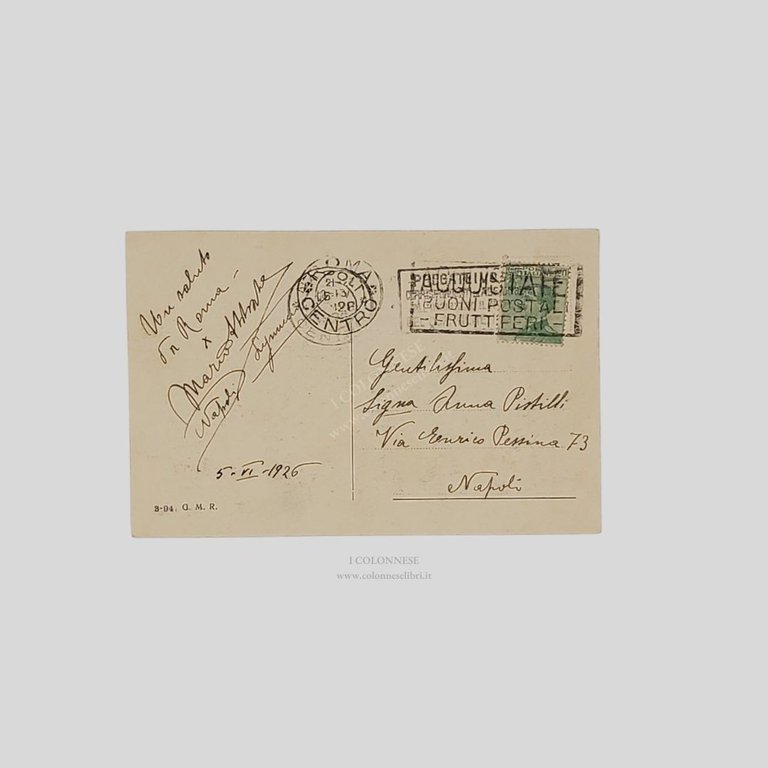 Un saluto
da Roma -
x
Mario
Napoli
5-VI-1926
3-94. G. M. R.
ROMA
NAPOLI
CENTRO
ACQUISTATE
BUONI POSTALI
- FRUTTIFERI -
Gentilissima
Signa Anna Pistilli
Via Enrico Pessina 73
Napoli
I COLONNESE
www.colonneselibri.it